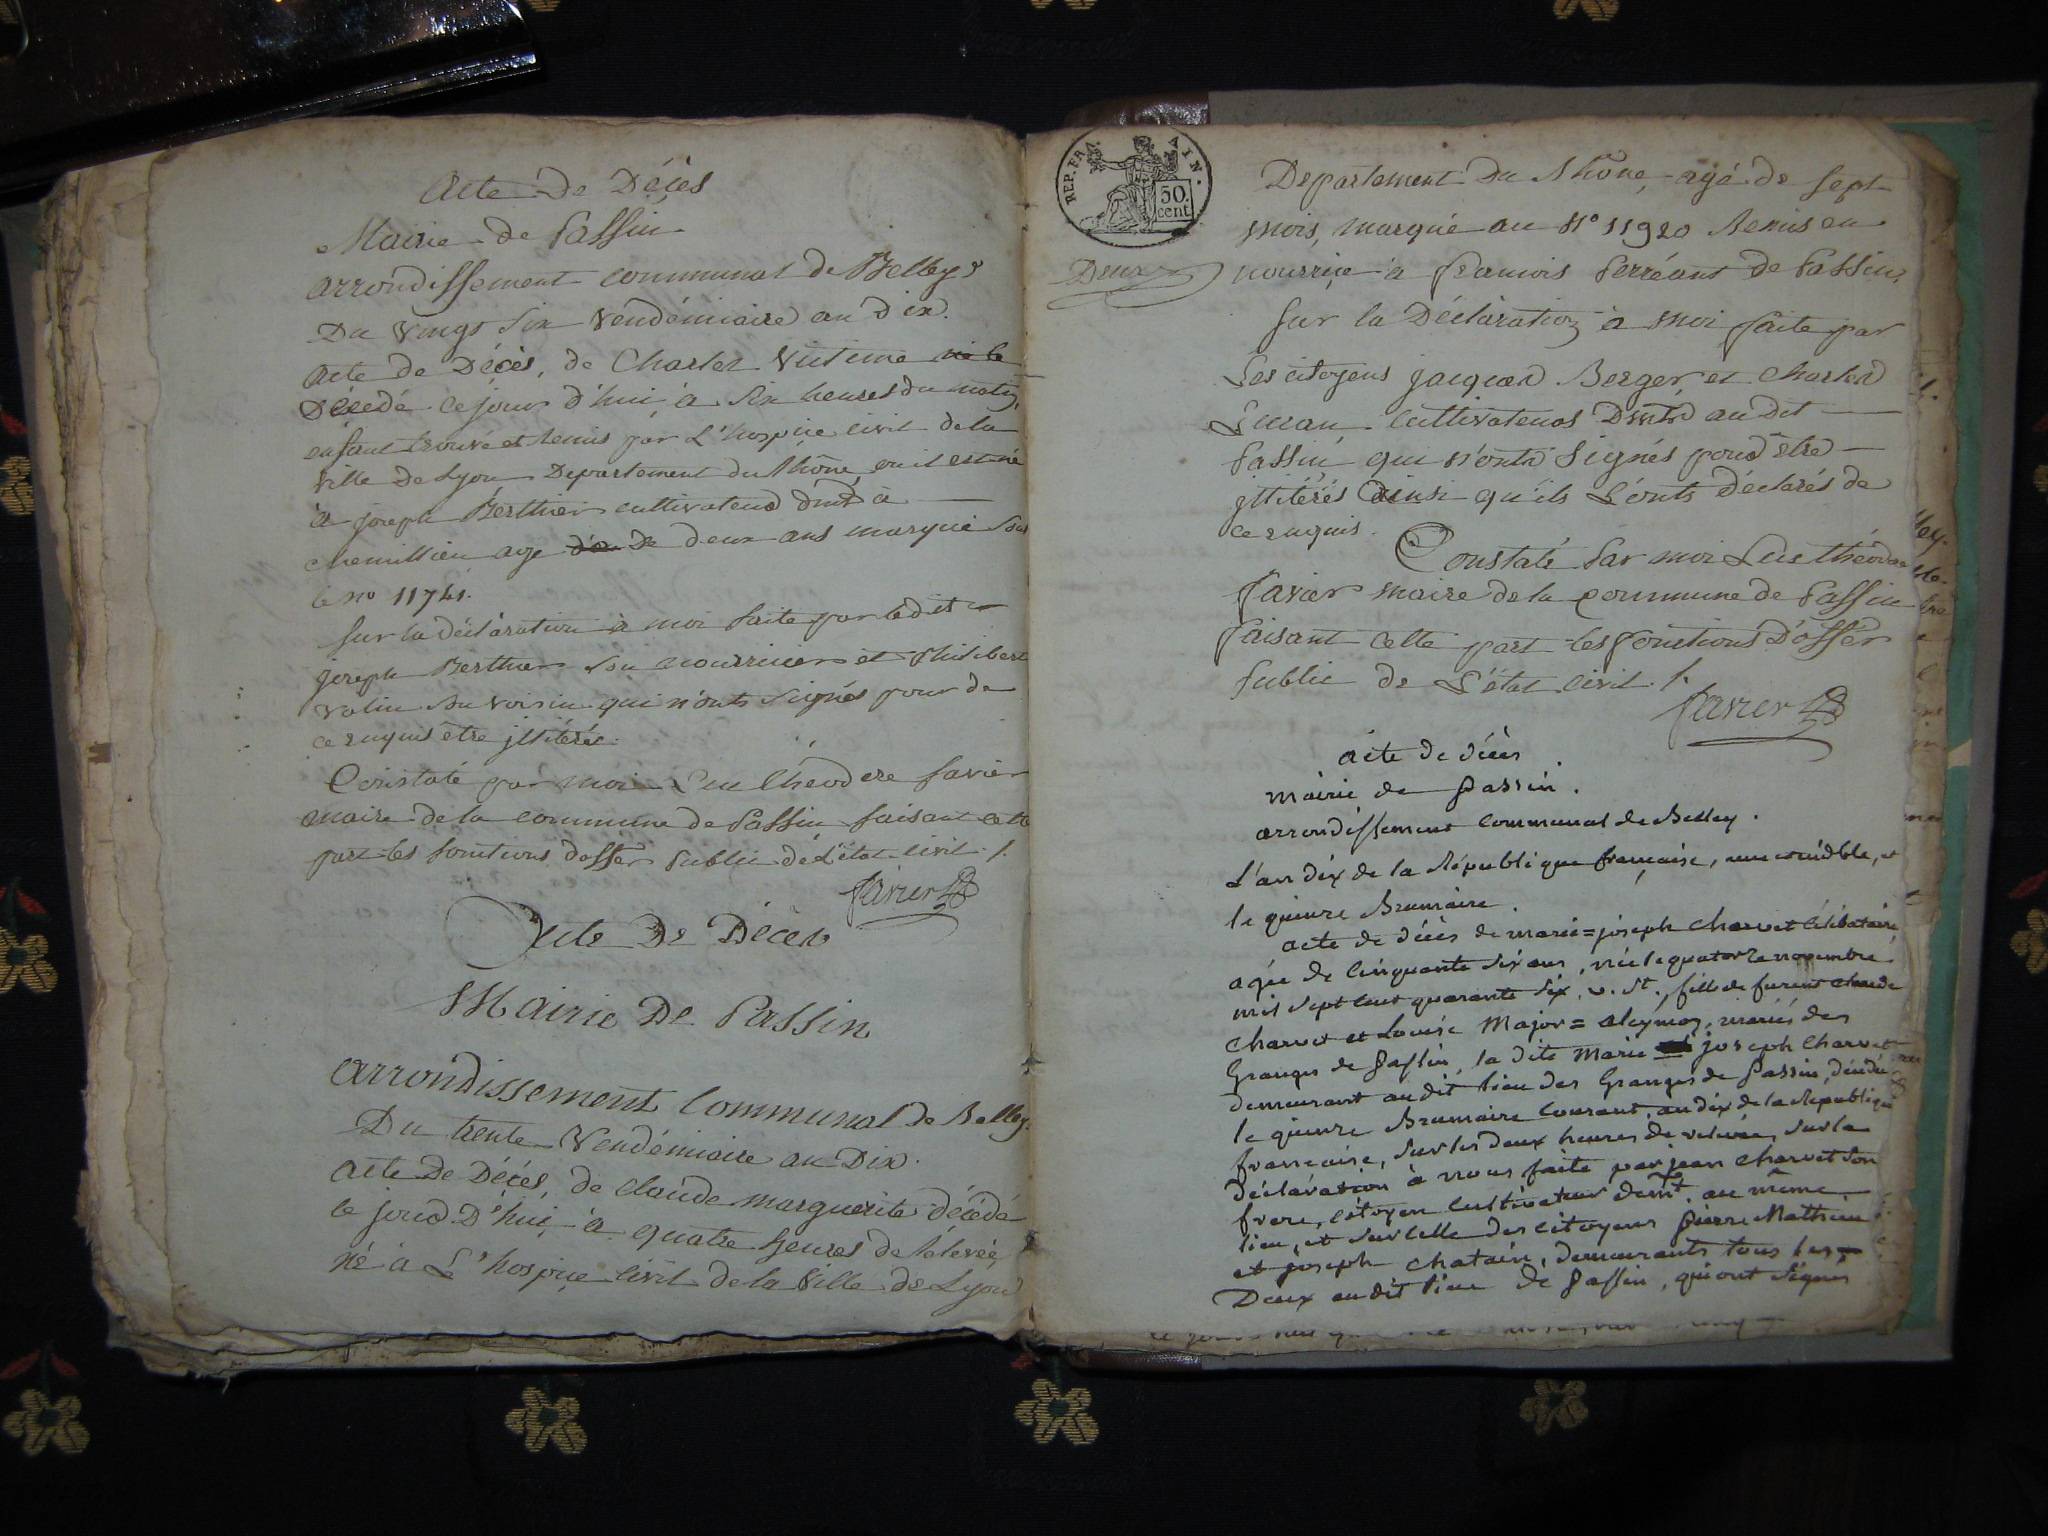 Acte de Décès
Mairie de Passin
arrondissement communal de Belley
Du vingt six vendémiaire an dix.
Acte de Décès, de Charles Victime né le
Décédé ce jour d'hui, à six heures du matin,
enfant trouvé et remis par L'hospice civil de la
ville de Lyon Département du Rhône, ou il est né
à joseph Berthier cultivateur dmt à
chemillieu age d'an de deux ans marqué sous
le no 11741.
Sur la déclaration à moi faite par le dit
joseph Berthier son nourricier et Philibert
son voisin qui n'onts signés pour de
ce requis être jllitérés.
Constaté par moi Luc théodore favier
maire de la commune de Passin faisant cette
part les fonctions d'offer public de L'état civil ./.
favier
Acte De Décès
Mairie De Passin
Arrondissement Communal de Belley.
Du trente Vendémiaire an Dix.
Acte De Décès, de claude marguerite décédé
le jour D'hui, à quatre heures de relevée,
né à L'hospice civil de la Ville de Lyon
REP. FRA
AIN.
50.
cent.
Deux
Département Du Rhône, agé de sept
mois, marqué au N° 11920 Remis en
nourrice à francois de Passin,
Sur la Déclaration à moi faite par
Les citoyens jacques Berger et charles
cultivateurs Dmts au dit
Passin qui n'onts Signés pour être
jllitérés ainsi qu'ils L'onts déclarés de
ce requis.
Constaté Par moi Luc théodore
favier maire de la commune de Passin
faisant cette part les fonctions D'offer
Public de L'état civil ./.
favier
acte de décès
mairie de Passin.
arrondissement communal de Belley.
L'an dix de la République française, une et indivisible, et
le quinze Brumaire.
acte de décès de marie=joseph Charvet célibataire,
agée de cinquante six ans, née le quatorze novembre
mil sept cent quarante six. v. st., fille de furent claude
Charvet et Louise Major= aleymoz, mariés des
Granges de Passin, la dite Marie joseph Charvet
demeurant au dit lieu des Granges de Passin, décédée
le quinze Brumaire courant, an dix de la République
française, sur les deux heures de relevée, sur la
déclaration à nous faite par jean Charvet son
frere, citoyen cultivateur demt. au même
lieu, et sur celle des citoyens pierre Mathieu
et joseph chatain, demeurants tous les
Deux au dit lieu de Passin, qui ont signés